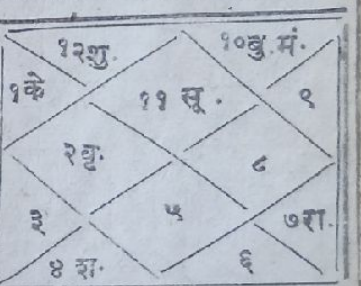 १२शु. १०बु.मं.
१के ११ सू. ९
२बृ. ८
३ ५ ७रा.
४ श. ६